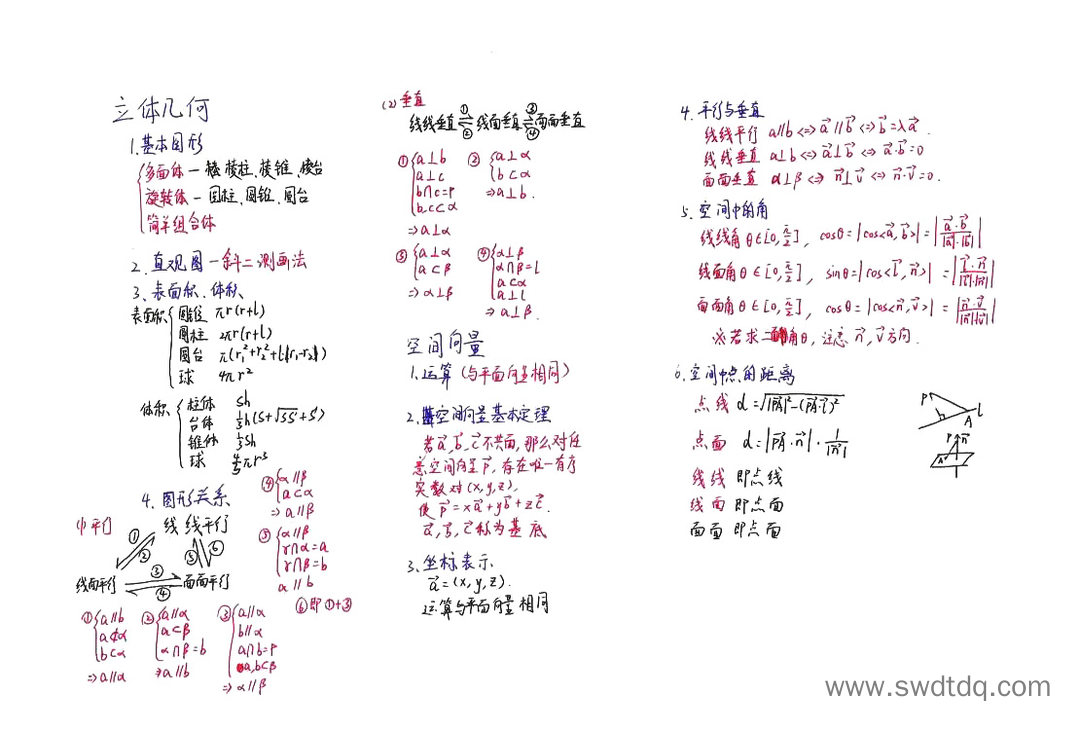 立体几何
1.基本图形
多面体－棱柱、棱锥、棱台
旋转体－圆柱、圆锥、圆台
简单组合体
2.直观图－斜二测画法
3、表面积、体积、
表面积
圆锥 πr(r+l)
圆柱 2πr(r+l)
圆台 π(r₁²+r₂²+l(r₁+r₂))
球 4πr²
体积
柱体 Sh
台体 ⅓h(S+√SS'+S')
锥体 ⅓Sh
球 4/3πr³
4.图形关系
(1)平行
线线平行
① ② ⑤ ⑥
线面平行 ③ ④ 面面平行
① a∥b
a⊄α
b⊂α
⇒a∥α
② a∥α
a⊂β
α∩β=b
⇒a∥b
③ a∥α
b∥α
a∩b=P
a,b⊂β
⇒α∥β
④ α∥β
a⊂α
⇒a∥β
⑤ α∥β
γ∩α=a
γ∩β=b
a∥b
⑥即①+③
(2)垂直
线线垂直 ① ② 线面垂直 ③ ④ 面面垂直
① a⊥b
a⊥c
b∩c=P
b,c⊂α
⇒a⊥α
② a⊥α
b⊂α
⇒a⊥b.
③ a⊥α
a⊂β
⇒α⊥β
④ α⊥β
α∩β=l
a⊂α
a⊥l
⇒a⊥β.
空间向量
1.运算(与平面向量相同)
2.空间向量基本定理
若a⃗,b⃗,c⃗不共面,那么对任
意空间向量p⃗,存在唯一有序
实数对(x,y,z),
使p⃗=xa⃗+yb⃗+zc⃗.
a⃗,b⃗,c⃗称为基底
3.坐标表示
a⃗=(x,y,z).
运算与平面向量相同
4.平行与垂直
线线平行 a∥b<=>a⃗∥b⃗<=>b⃗=λa⃗.
线线垂直 a⊥b<=>a⃗⊥b⃗<=>a⃗·b⃗=0
面面垂直 α⊥β<=>n⃗⊥v⃗<=>n⃗·v⃗=0.
5.空间中的角
线线角θ∈[0,π/2], cosθ=|cos<a⃗,b⃗>|=|a⃗·b⃗/|a⃗|·|b⃗||
线面角θ∈[0,π/2], sinθ=|cos<l⃗,n⃗>|=|l⃗·n⃗/|l⃗||n⃗||
面面角θ∈[0,π/2], cosθ=|cos<n⃗,v⃗>|=|n⃗·v⃗/|n⃗||v⃗||
※若求二面角θ,注意n⃗,v⃗方向.
6.空间中点的距离
点线 d=√|PA⃗|²-(PA⃗·l⃗)²
P A l
点面 d=|PA⃗·n⃗|·1/|n⃗|
P n⃗ A
线线 即点线
线面 即点面
面面 即点面
www.swdtdq.com